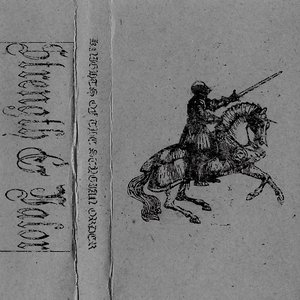 Strength & Valor
KNIGHTS OF THE STYGIAN ORDER